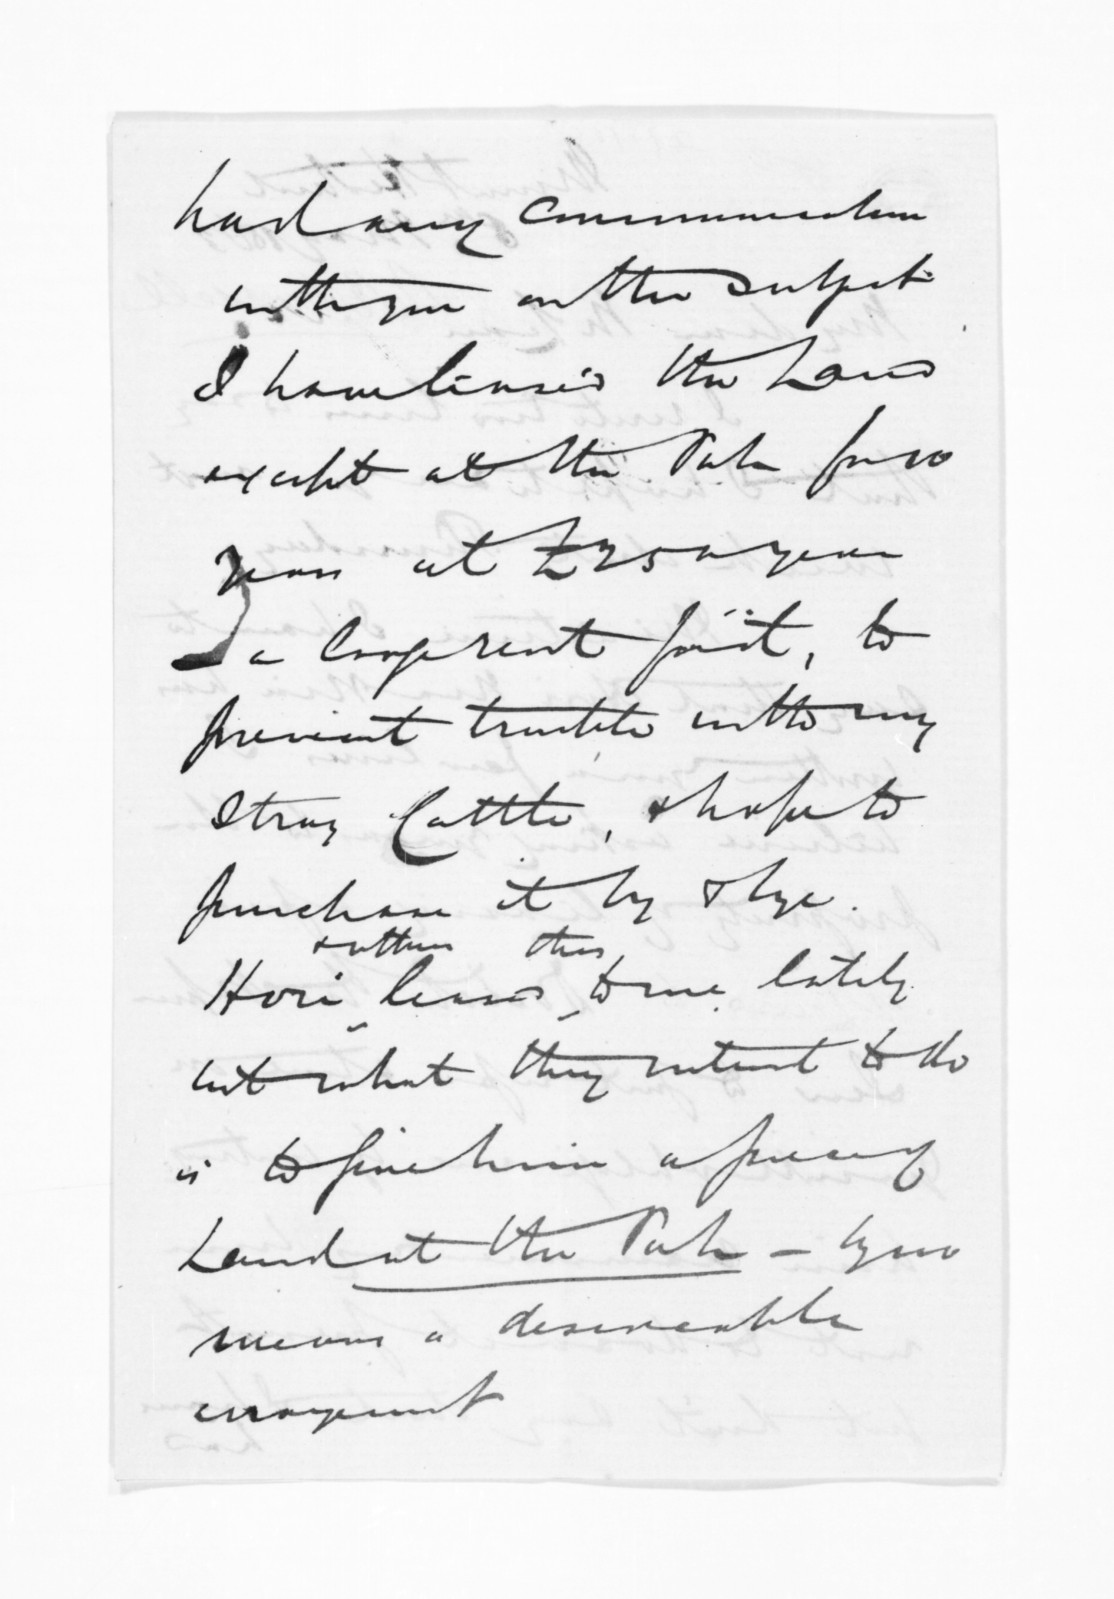 had any communication
with you on the subject
I have leased the Land
except at the Pah for 10
years at £250 a year
a large rent for it, to
prevent trouble with my
stray Cattle, & hope to
purchase it by & bye.
Hori & others leased this to me lately
but what they intend to do
is to give him a piece of
Land at the Pah – by no
means a desireable
arrangement